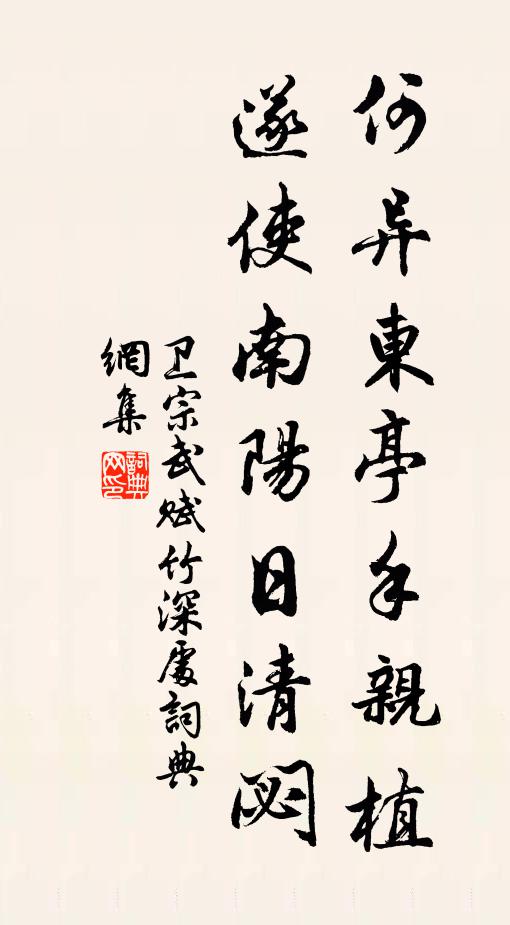 何异東亭手親植
遂使南陽日清閟
卫宗武赋竹深處詞典
網集
詞典
网印